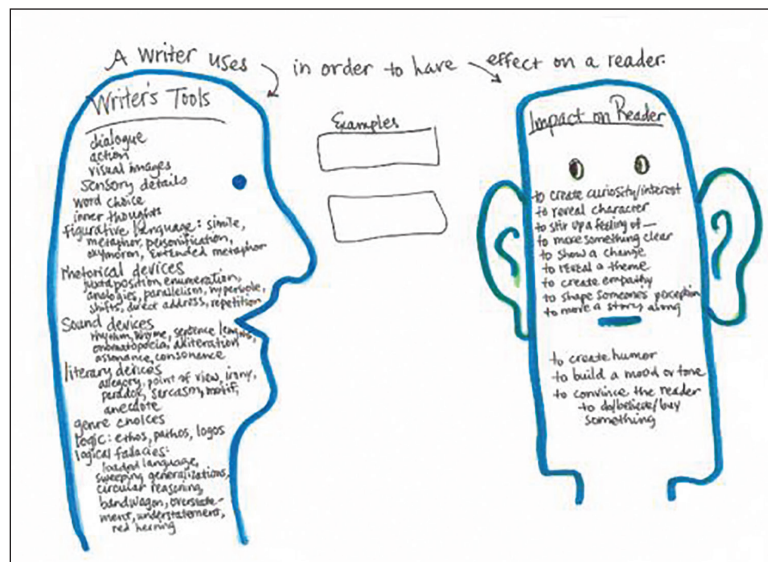 A writer uses in order to have effect on a reader.
Writer's Tools
dialogue
action
visual images
sensory details
word choice
inner thoughts
figurative language: simile,
metaphor, personification,
oxymoron, extended metaphor
rhetorical devices
juxtaposition, enumeration,
analogies, parallelism, hyperbole,
shifts, direct address, repetition
Sound devices
rhythm, rhyme, sentence lengths,
onomatopoeia, alliteration
assonance, consonance
literary devices
allegory, point of view, irony,
paradox, sarcasm, motif,
anecdote
genre choices
logic: ethos, pathos, logos
logical fallacies:
loaded language,
sweeping generalizations,
circular reasoning,
bandwagon, overstate-
ment, understatement,
red herring
Examples
Impact on Reader
to create curiosity/interest
to reveal character
to stir up a feeling of —
to make something clear
to show a change
to reveal a theme
to create empathy
to shape someone's perception
to move a story along
to create humor
to build a mood or tone
to convince the reader
to do/believe/buy
something